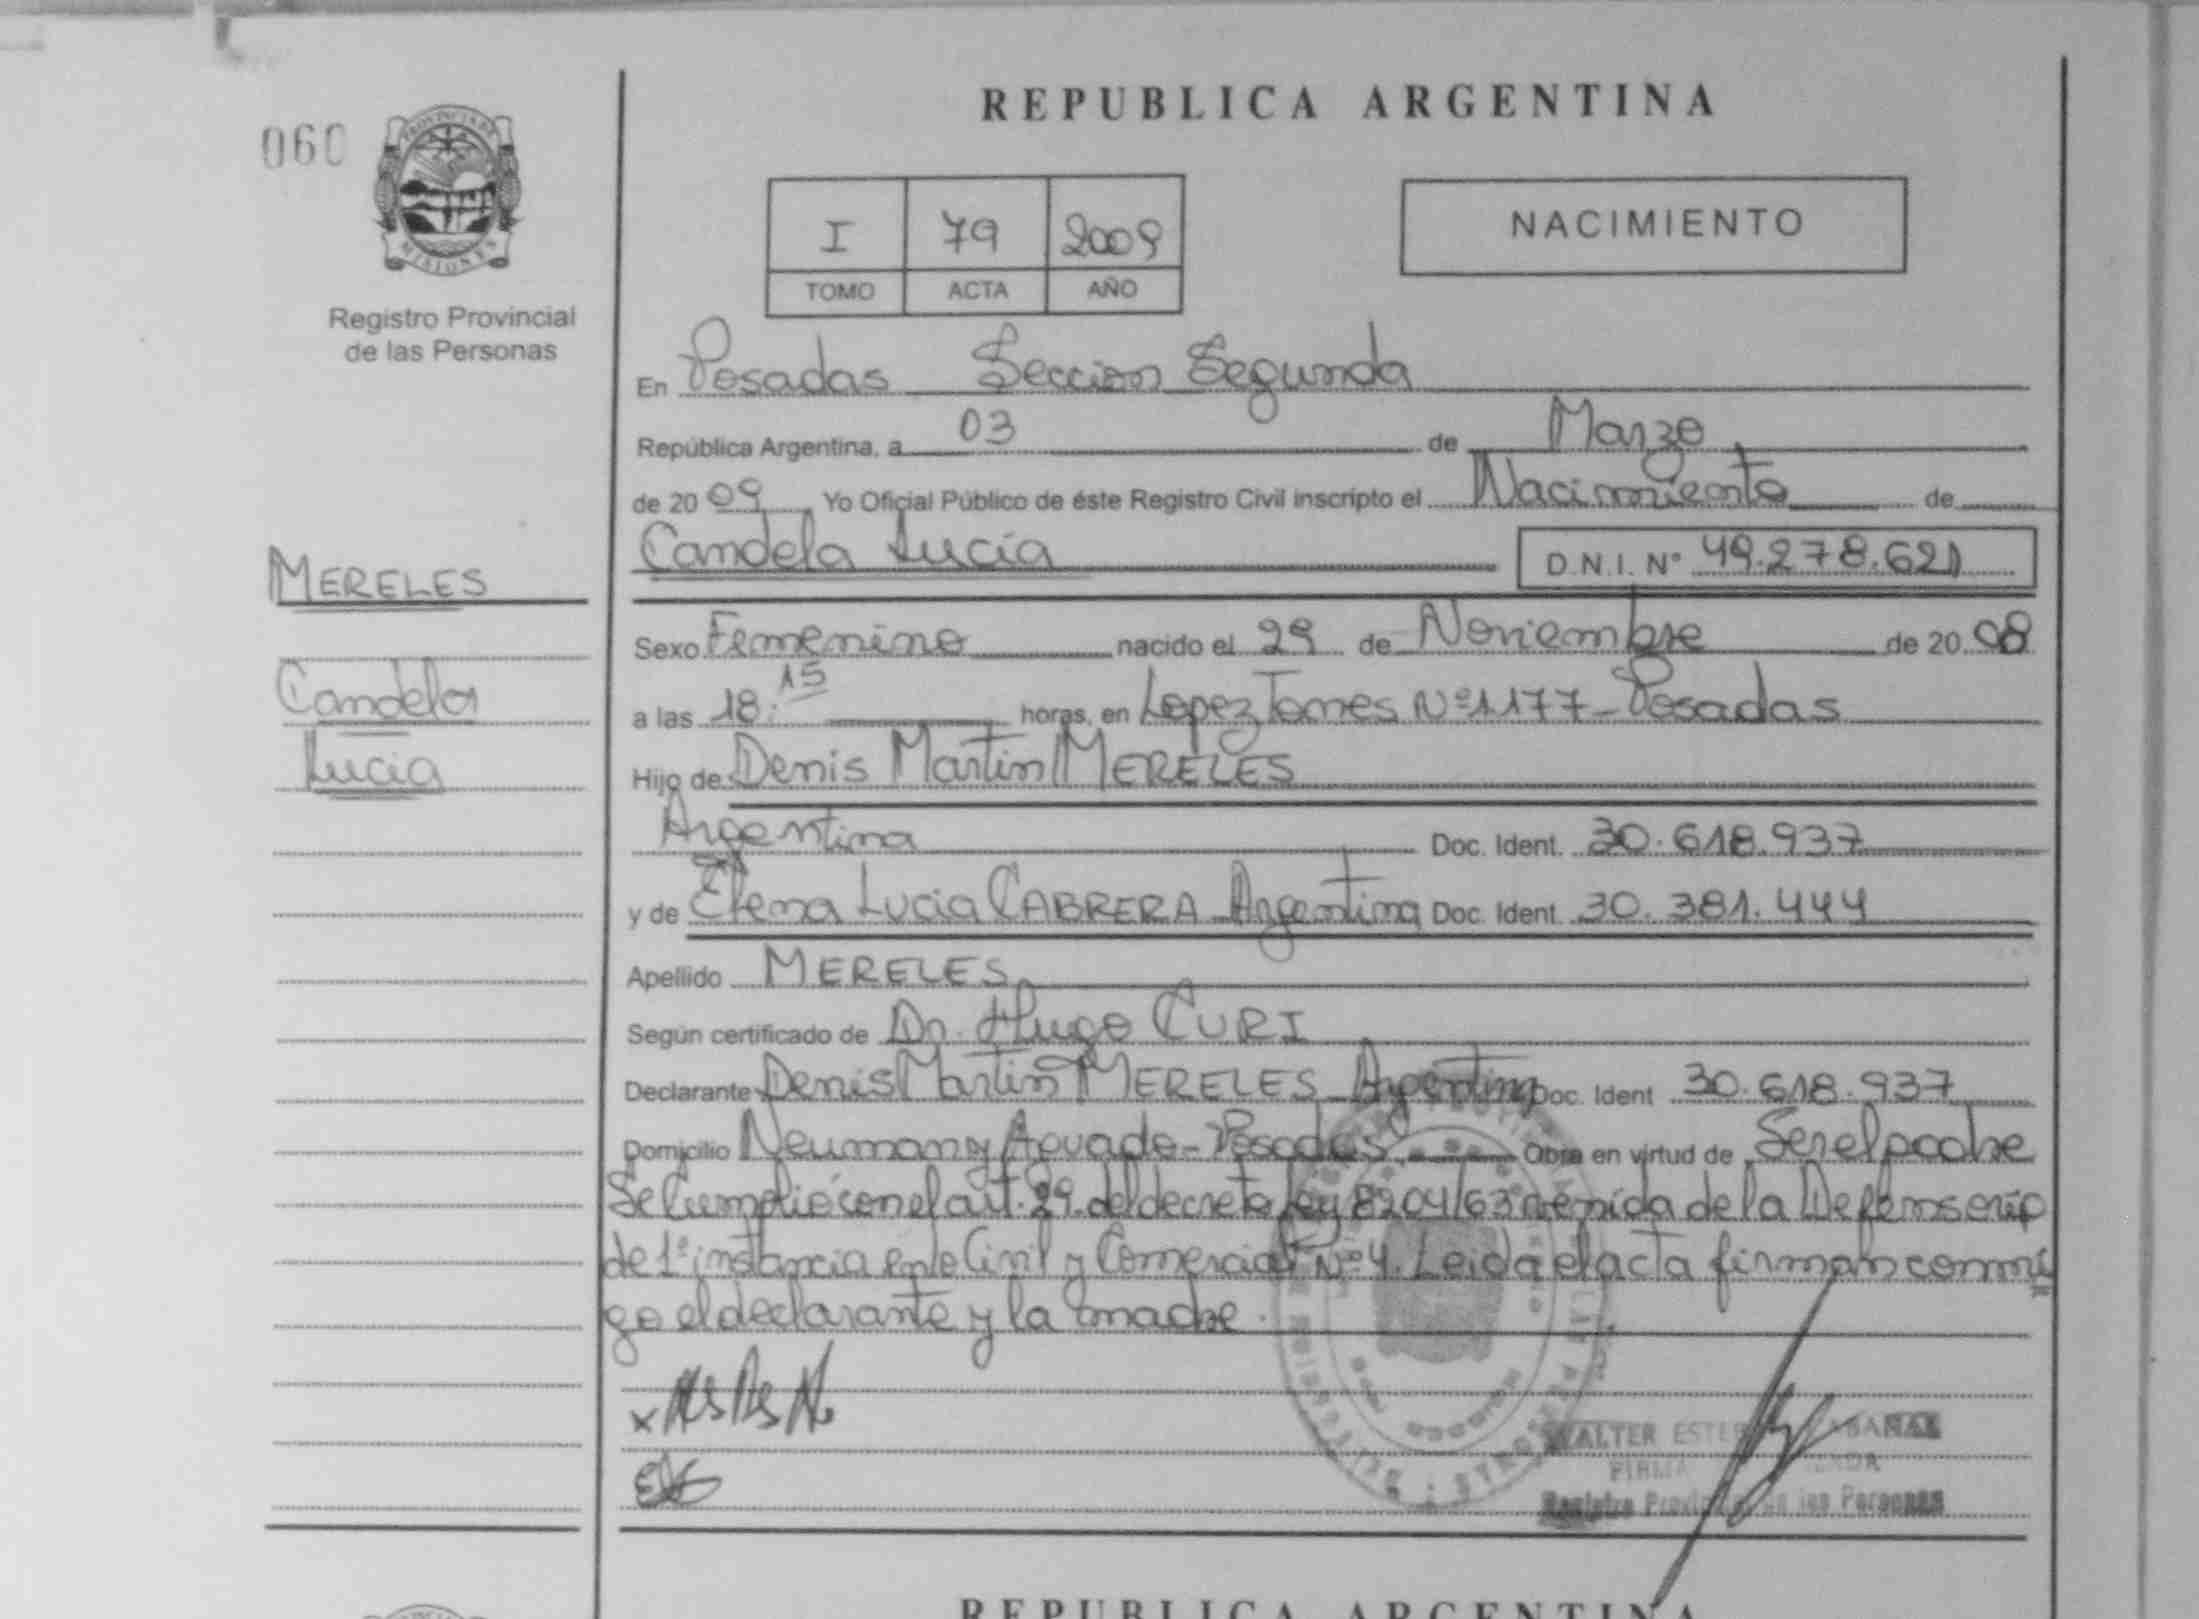 REPUBLICA ARGENTINA
060
PROVINCIA DE
MISIONES
Registro Provincial
de las Personas
I 79 2009
TOMO ACTA AÑO
NACIMIENTO
En Posadas Seccion Segunda
República Argentina, a 03 de Marzo
de 20 09 Yo Oficial Público de éste Registro Civil inscripto el Nacimiento de
Candela Lucía D.N.I. N° 49.278.621
MERELES
Candela
Lucía
Sexo Femenino nacido el 29 de Noviembre de 20 08
a las 18:15 horas, en Lopez Torres Nº 1177 - Posadas
Hijo de Denis Martin MERELES
Argentina Doc. Ident. 30.618.937
y de Elena Lucia CABRERA Argentina Doc. Ident. 30.381.444
Apellido MERELES
Según certificado de Dr. Hugo CURI
Declarante Denis Martin MERELES Argentina Doc. Ident 30.618.937
Domicilio Neuman y Aguado - Posadas Obra en virtud de Ser el padre
Se Cumplió con el art. 29. del decreto ley 8204/63 venida de la Defensoría
de 1ª instancia en lo Civil y Comercial Nº 4. Leida el acta firman conmi
go el declarante y la madre.
WALTER
FIRMA
Registro Provincial de las Personas
REPUBLICA ARGENTINA